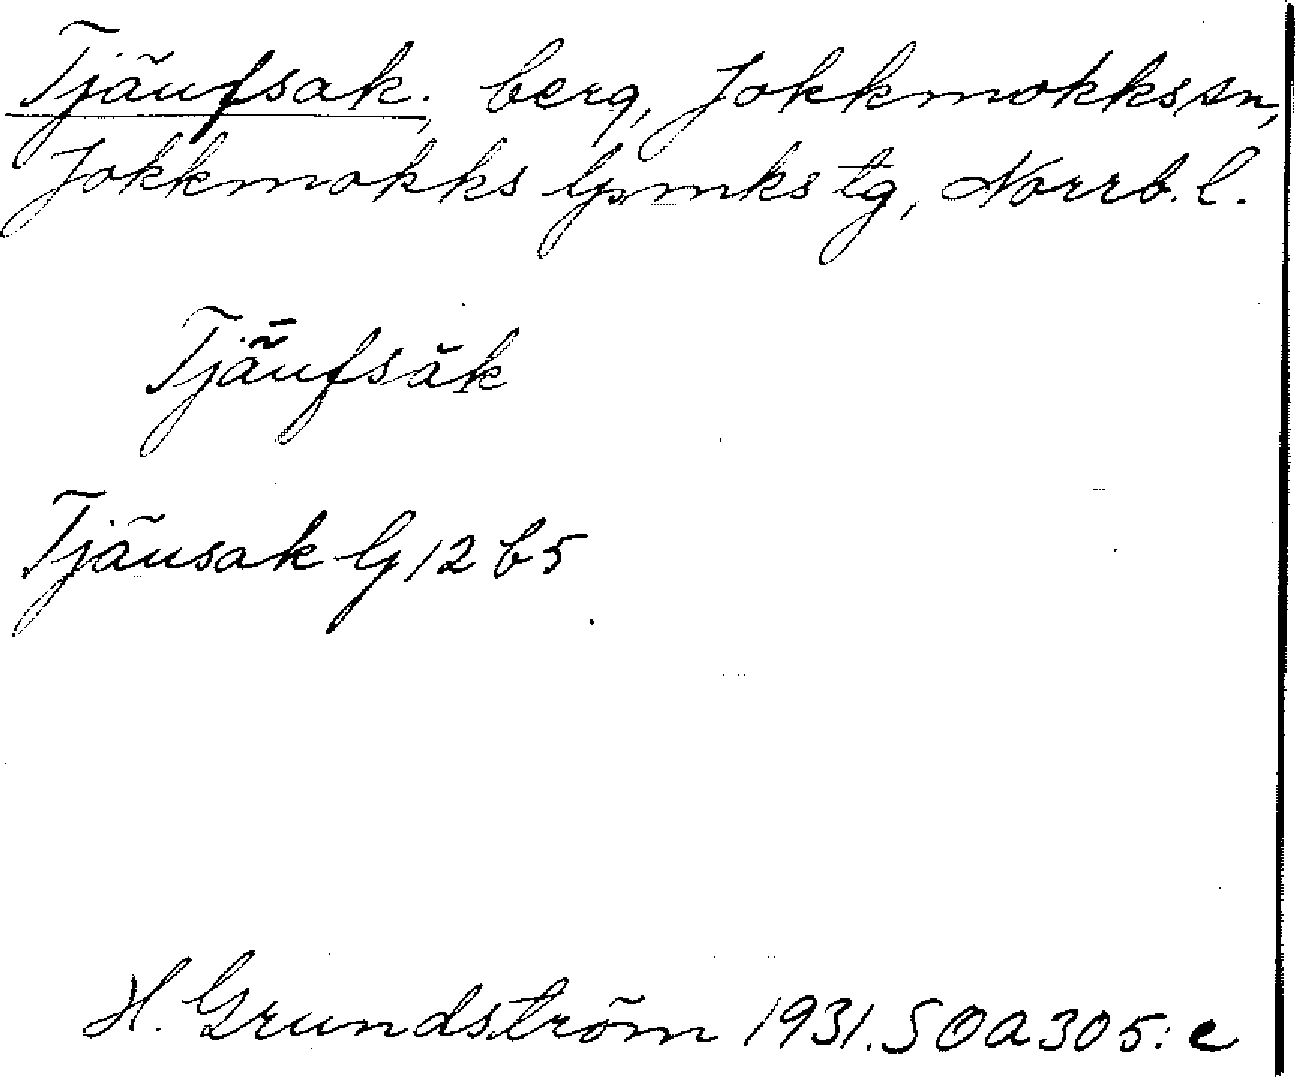 Tjäufsak, berg, Jokkmokks sn,
Jokkmokks lpmks tg, Norrb. l.
Tjǟufsăk
Tjäusak G 12 b5
H. Grundström 1931. SOA 305: e